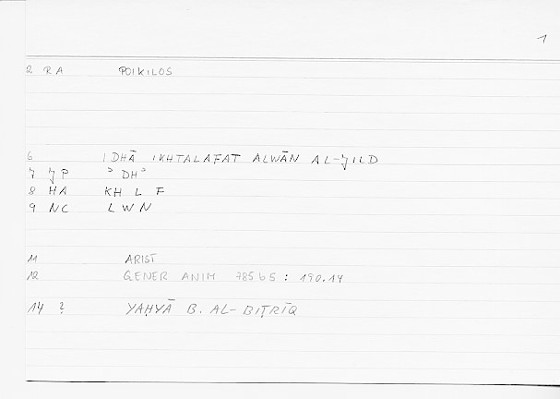 1
2 RA POIKILOS
6 IDHĀ IKHTALAFAT ALWĀN AL-JILD
7 JP ʾ DHʾ
8 HA KH L F
9 NC L W N
11 ARIST
12 GENER ANIM 785b5 : 190.14
14 ? YAḤYĀ B. AL-BIṬRĪQ